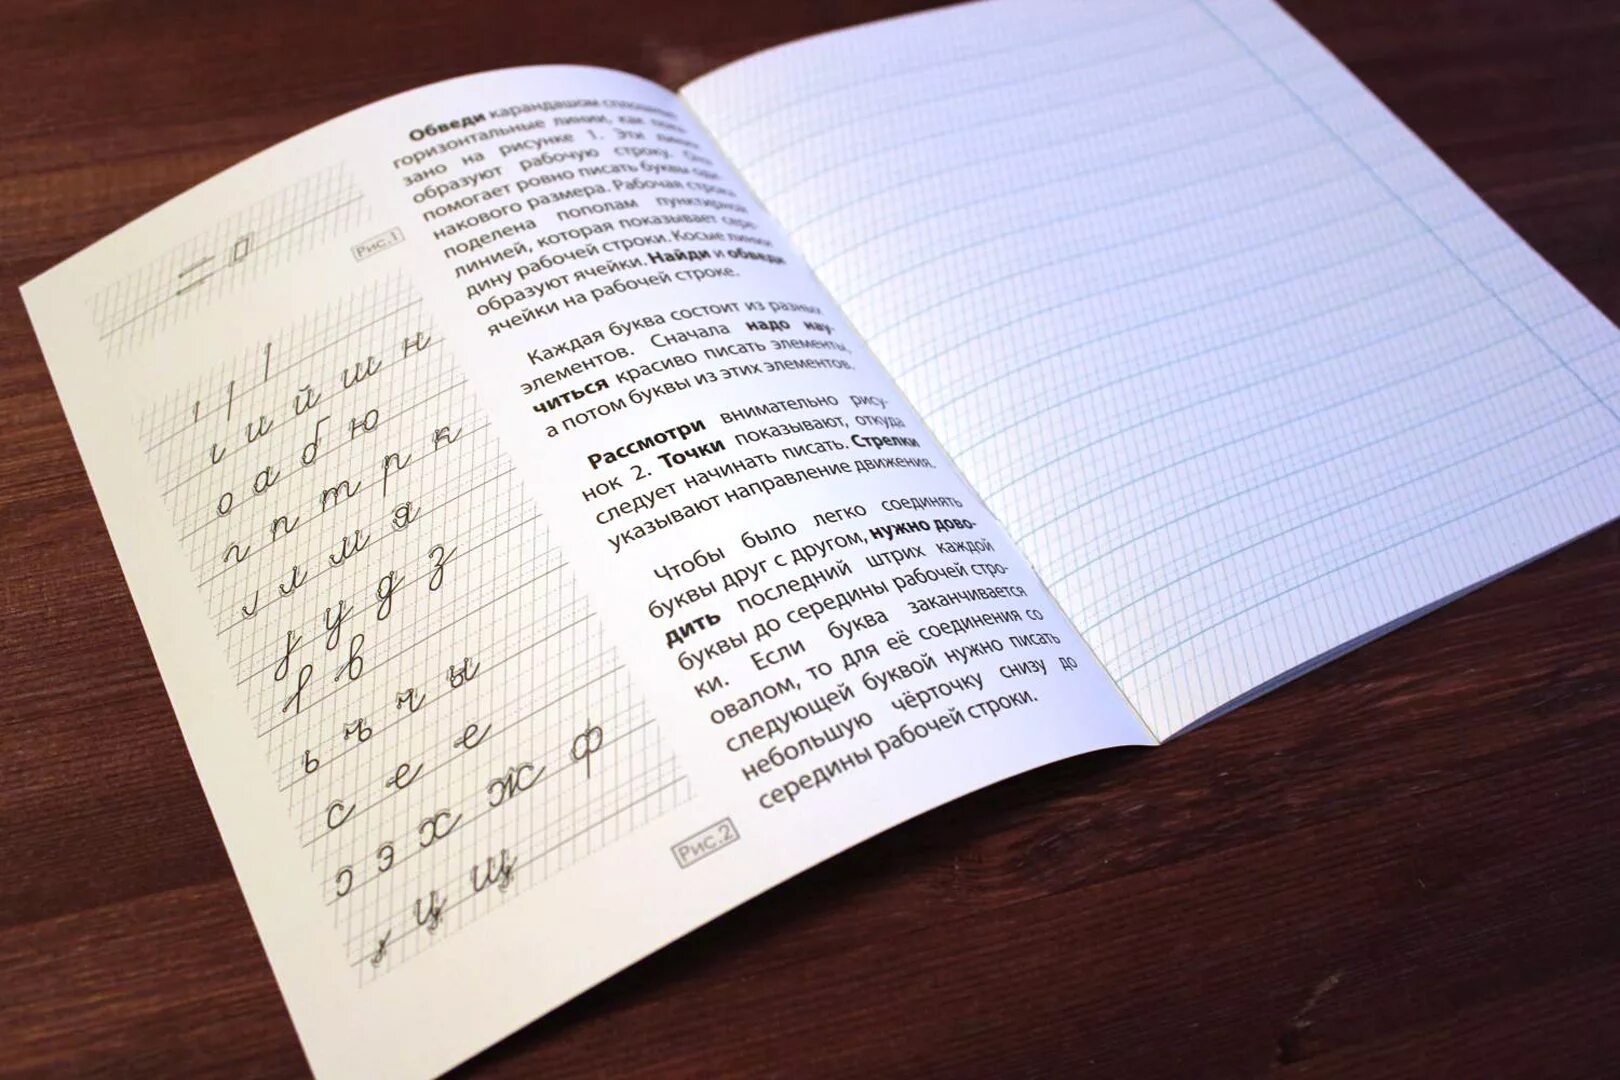 Обведи карандашом сплошные
горизонтальные линии, как пока-
зано на рисунке 1. Эти линии
образуют рабочую строку. Она
помогает ровно писать буквы оди-
накового размера. Рабочая строка
поделена пополам пунктирной
линией, которая показывает сере-
дину рабочей строки. Косые линии
образуют ячейки. Найди и обведи
ячейки на рабочей строке.
Каждая буква состоит из разных
элементов. Сначала надо нау-
читься красиво писать элементы,
а потом буквы из этих элементов.
Рассмотри внимательно рису-
нок 2. Точки показывают, откуда
следует начинать писать. Стрелки
указывают направление движения.
Чтобы было легко соединять
буквы друг с другом, нужно дово-
дить последний штрих каждой
буквы до середины рабочей стро-
ки. Если буква заканчивается
овалом, то для её соединения со
следующей буквой нужно писать
небольшую чёрточку снизу до
середины рабочей строки.
Рис.1
и й ш н
о а б ю
г п т р к
л м я
у д з
в
ь ъ ч ы
с е е
э х ж ф
ц щ
Рис.2